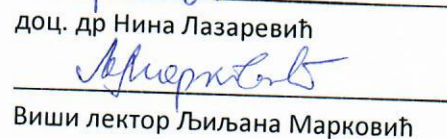 доц. др Нина Лазаревић
Виши лектор Љиљана Марковић